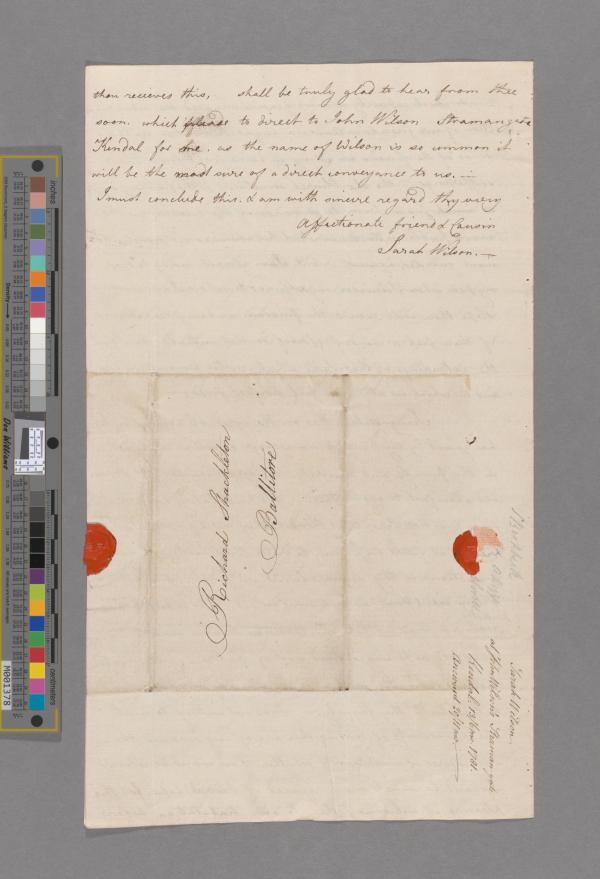 thou recieves this, shall be truly glad to hear from thee
soon. which please to direct to John Wilson Stramangate
Kendal for me. as the name of Wilson is so common it
will be the most sure of a direct conveyance to us. —
I must conclude this. & am with sincere regard thy very
affectionate friend & Cousin
Sarah Wilson. —
Richard Shackleton
Ballitore
Sarah Wilson
at John Wilson's Stramangate
Kendal,
inches
centimeters
Density
Don Williams
M001378